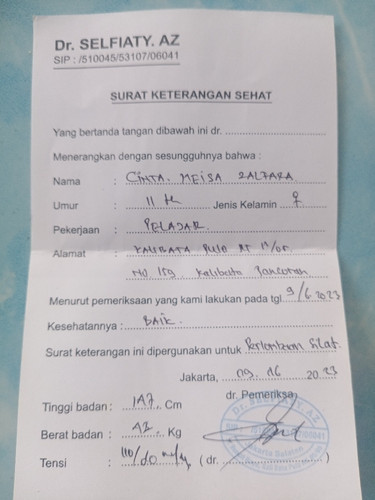 Dr. SELFIATY. AZ
SIP : /510045/53107/06041
SURAT KETERANGAN SEHAT
Yang bertanda tangan dibawah ini dr. ................................
Menerangkan dengan sesungguhnya bahwa :
Nama : CINTA. MEISA ZALZARA
Umur : 11 th Jenis Kelamin ♀
Pekerjaan : PELAJAR.
Alamat : KALIBATA PULO RT
NO 159 Kalibata Pancoran
Menurut pemeriksaan yang kami lakukan pada tgl 9/6.2023
Kesehatannya : BAIK.
Surat keterangan ini dipergunakan untuk Perlombaan Silat.
Jakarta, 09. 20.23
dr. Pemeriksa,
Tinggi badan : 147. Cm
Berat badan : 42. Kg
Tensi : 110/80 ( dr. ................ )
Dr. SELFIATY. AZ